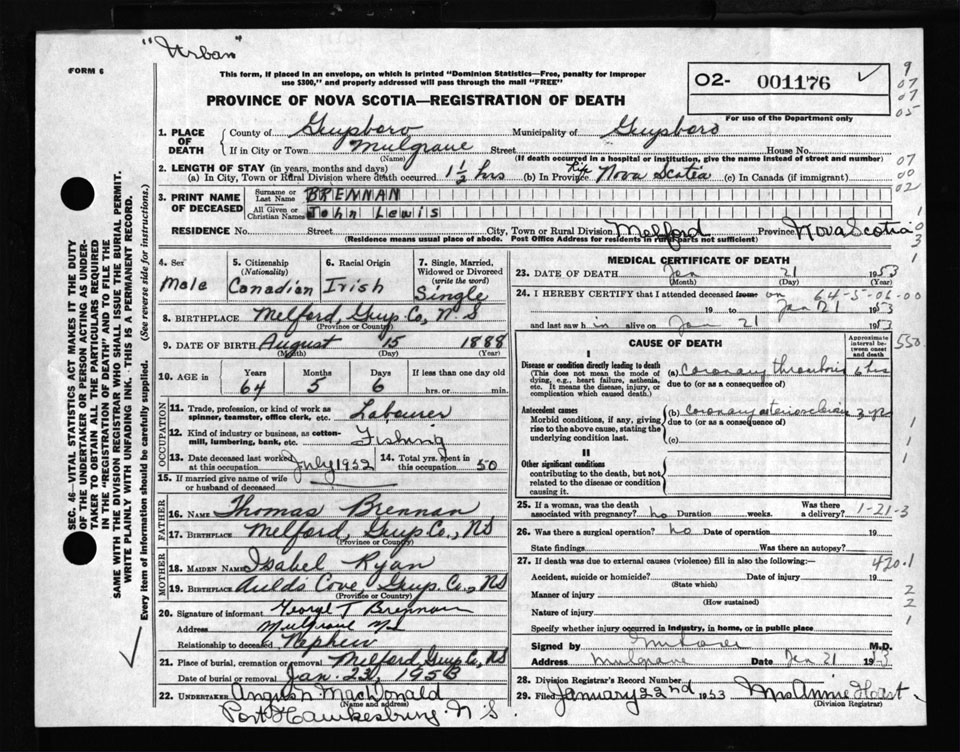 "Urban"
FORM 6
This form, if placed in an envelope, on which is printed "Dominion Statistics—Free, penalty for improper
use $300," and properly addressed will pass through the mail "FREE"
02- 001176 ✓
For use of the Department only
PROVINCE OF NOVA SCOTIA—REGISTRATION OF DEATH
9
07
07
05
1. PLACE OF DEATH { County of Guysboro Municipality of Guysboro
If in City or Town Mulgrave Street House No.
(Name) (If death occurred in a hospital or institution, give the name instead of street and number)
2. LENGTH OF STAY (in years, months and days)
(a) In City, Town or Rural Division where death occurred 1½ hrs (b) In Province Life Nova Scotia (c) In Canada (if immigrant)
07
00
02
3. PRINT NAME OF DECEASED { Surname or Last Name BRENNAN
All Given or Christian Names John Lewis
RESIDENCE No. Street City, Town or Rural Division Melford Province Nova Scotia
(Residence means usual place of abode. Post Office Address for residents in rural parts not sufficient)
1
03
3
1
4. Sex Male
5. Citizenship (Nationality) Canadian
6. Racial Origin Irish
7. Single, Married, Widowed or Divorced (write the word) Single
8. BIRTHPLACE Melford, Guys. Co, N.S
(Province or Country)
9. DATE OF BIRTH August 15 1888
(Month) (Day) (Year)
10. AGE in Years 64 Months 5 Days 6 If less than one day old
hrs. or min.
OCCUPATION
11. Trade, profession, or kind of work as spinner, teamster, office clerk, etc. Labourer
12. Kind of industry or business, as cotton-mill, lumbering, bank, etc. Fishing
13. Date deceased last worked at this occupation July 1952 14. Total yrs. spent in this occupation 50
15. If married give name of wife or husband of deceased
FATHER
16. NAME Thomas Brennan
17. BIRTHPLACE Melford, Guys. Co., NS
(Province or Country)
MOTHER
18. MAIDEN NAME Isabel Ryan
19. BIRTHPLACE Auld's Cove, Guys. Co., NS
(Province or Country)
20. Signature of informant George T Brennan
Address Mulgrave NS
Relationship to deceased Nephew
21. Place of burial, cremation or removal Melford Guys Co, NS
Date of burial or removal Jan. 23, 1953
22. UNDERTAKER Angus N MacDonald
(Name and address)
Port Hawkesbury N.S.
MEDICAL CERTIFICATE OF DEATH
23. DATE OF DEATH Jan 21 1953
(Month) (Day) (Year)
24. I HEREBY CERTIFY that I attended deceased from on 64-5-06-00
19 to Jan 21 1953
and last saw h im alive on Jan 21 1953
CAUSE OF DEATH
Approximate interval between onset and death
550
I
Disease or condition directly leading to death
(This does not mean the mode of dying, e.g., heart failure, asthenia, etc. It means the disease, injury, or complication which caused death.)
(a) Coronary thrombosis 6 hrs
due to (or as a consequence of)
Antecedent causes
Morbid conditions, if any, giving rise to the above cause, stating the underlying condition last.
(b) coronary arteriosclerosis 3 yrs
due to (or as a consequence of)
(c)
1
1
1
II
Other significant conditions
contributing to the death, but not related to the disease or condition causing it.
25. If a woman, was the death associated with pregnancy? no Duration weeks. Was there a delivery? 1-21-3
26. Was there a surgical operation? no Date of operation 19
State findings Was there an autopsy?
27. If death was due to external causes (violence) fill in also the following:— 420.1
Accident, suicide or homicide? Date of injury 19
(State which)
Manner of injury 2
(How sustained)
Nature of injury 2
Specify whether injury occurred in industry, in home, or in public place 1
Signed by M.D.
Address Mulgrave Date Jan 21 1953
28. Division Registrar's Record Number
29. Filed January 22nd 1953 Mrs Annie
(Division Registrar)
SEC. 46—VITAL STATISTICS ACT MAKES IT THE DUTY
OF THE UNDERTAKER OR PERSON ACTING AS UNDER-
TAKER TO OBTAIN ALL THE PARTICULARS REQUIRED
IN THE "REGISTRATION OF DEATH" AND TO FILE THE
SAME WITH THE DIVISION REGISTRAR WHO SHALL ISSUE THE BURIAL PERMIT.
WRITE PLAINLY WITH UNFADING INK. THIS IS A PERMANENT RECORD.
Every item of information should be carefully supplied. (See reverse side for instructions.)